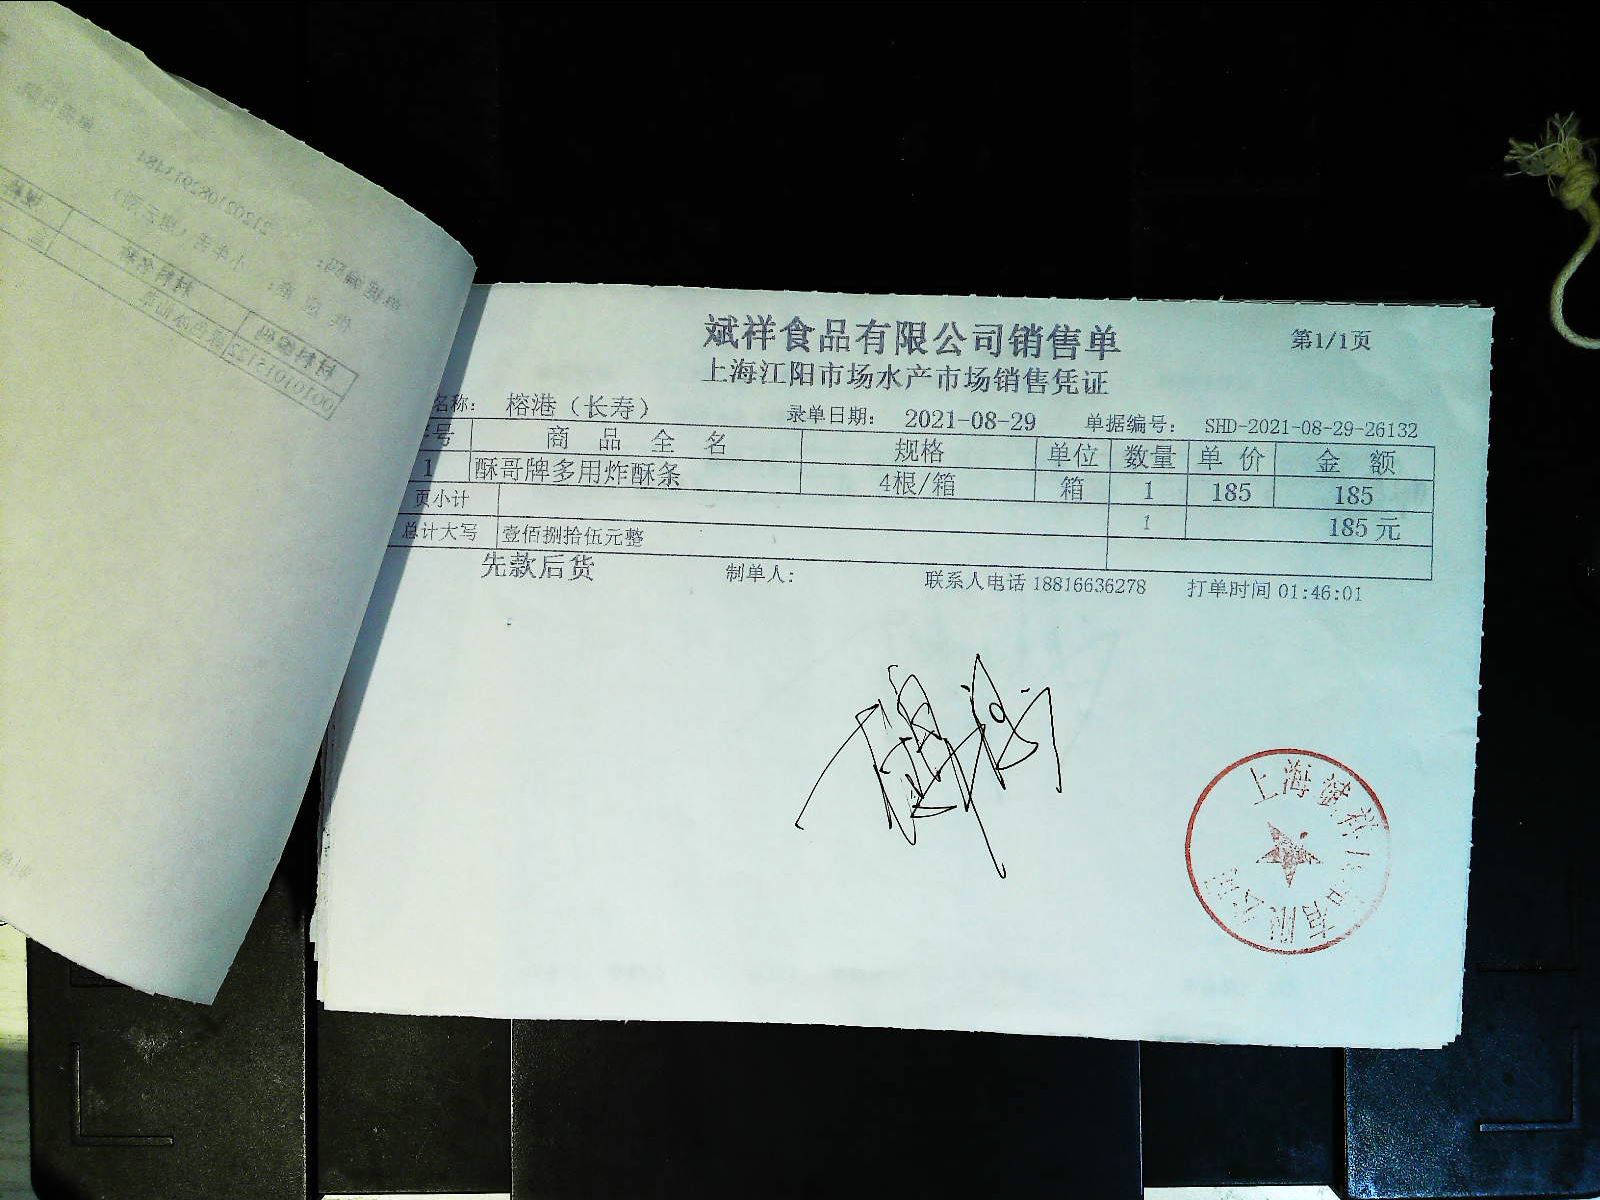 斌祥食品有限公司销售单
第1/1页
上海江阳市场水产市场销售凭证
名称： 榕港（长寿） 录单日期： 2021-08-29 单据编号： SHD-2021-08-29-26132
号 商品全名 规格 单位 数量 单价 金额
1 酥哥牌多用炸酥条 4根/箱 箱 1 185 185
页小计 1 185 元
总计大写 壹佰捌拾伍元整
先款后货 制单人: 联系人电话 18816636278 打单时间 01:46:01
上海斌祥 有限公司